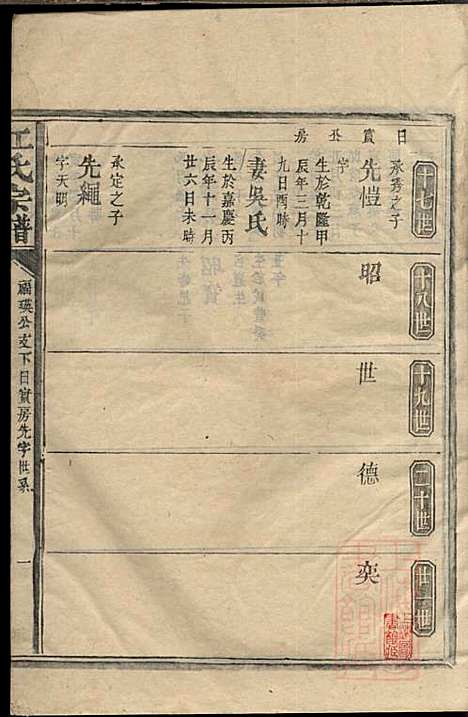 日實丕房
十七世
承秀之子
先愷
字
生於乾隆甲
辰年三月十
九日酉時
妻吳氏
生於嘉慶丙
辰年十一月
廿六日未時
承定之子
先繩
字天明
十八世
昭
十九世
世
二十世
德
廿一世
奕
江氏宗譜
福瑛公支下日實房先字世系
一